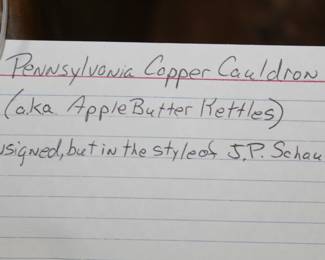 Pennsylvania Copper Cauldron
(a.k.a Apple Butter Kettles)
usigned, but in the style of J.P. Schau